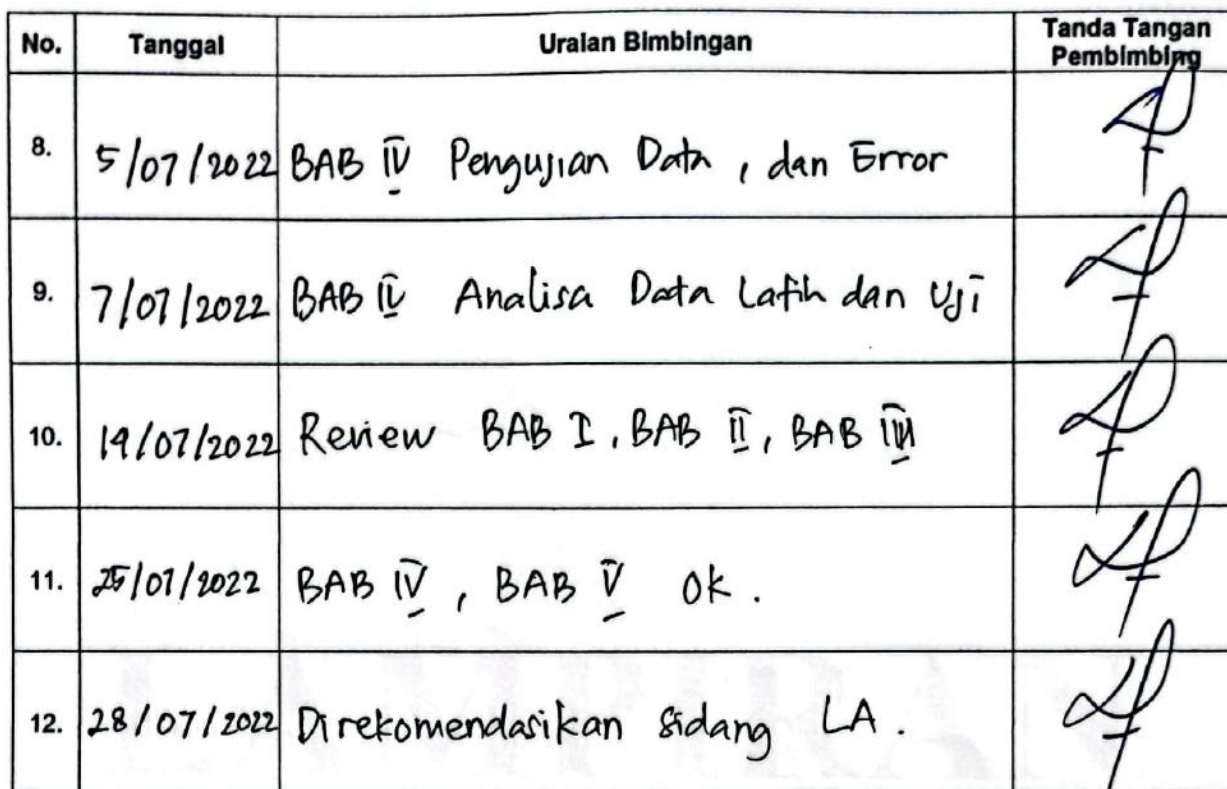 No. Tanggal Uraian Bimbingan Tanda Tangan Pembimbing
8. 5/07/2022 BAB IV Pengujian Data, dan Error
9. 7/07/2022 BAB IV Analisa Data Latih dan Uji
10. 14/07/2022 Review BAB I, BAB II, BAB III
11. 25/07/2022 BAB IV, BAB V ok.
12. 28/07/2022 Direkomendasikan sidang LA.